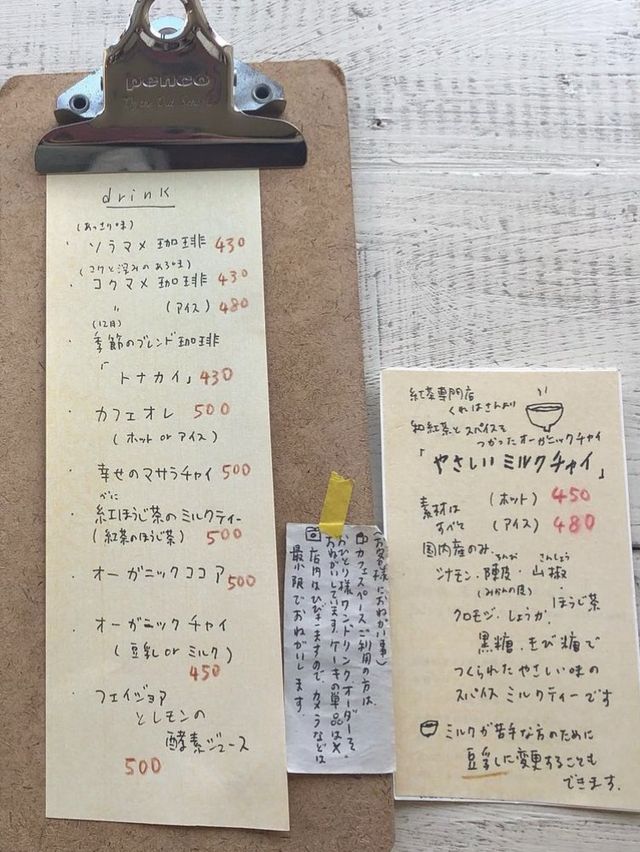 penco
drink
(あっさり味)
・ソラマメ 珈琲 430
(コクと深みのある味)
・コクマメ 珈琲 430
〃 (アイス) 480
(12月)
・季節のブレンド珈琲
「トナカイ」 430
・カフェオレ 500
(ホット or アイス)
・幸せのマサラチャイ 500
べに
・紅ほうじ茶のミルクティー
(紅茶のほうじ茶) 500
・オーガニックココア 500
・オーガニック チャイ
(豆乳 or ミルク)
450
・フェイジョア
とレモンの
酵素ジュース
500
(お客様におねがい事)
カフェスペースご利用の方は、
おひとり様ワンドリンクオーダーを
おねがいしています。ケーキの単品は×
店内はひびきますので、カメラなどは
最小限でおねがいします。
紅茶専門店
くれはさんより
和紅茶とスパイスを
つかったオーガニックチャイ
「やさしいミルクチャイ」
(ホット) 450
素材は
すべて
(アイス) 480
国内産のみ
ちんぴ さんしょう
シナモン・陳皮・山椒
(みかんの皮)
ほうじ茶
クロモジ・しょうが、
黒糖・きび糖で
つくられたやさしい味の
スパイス ミルクティーです
ミルクが苦手な方のために
豆乳に変更することも
できます。